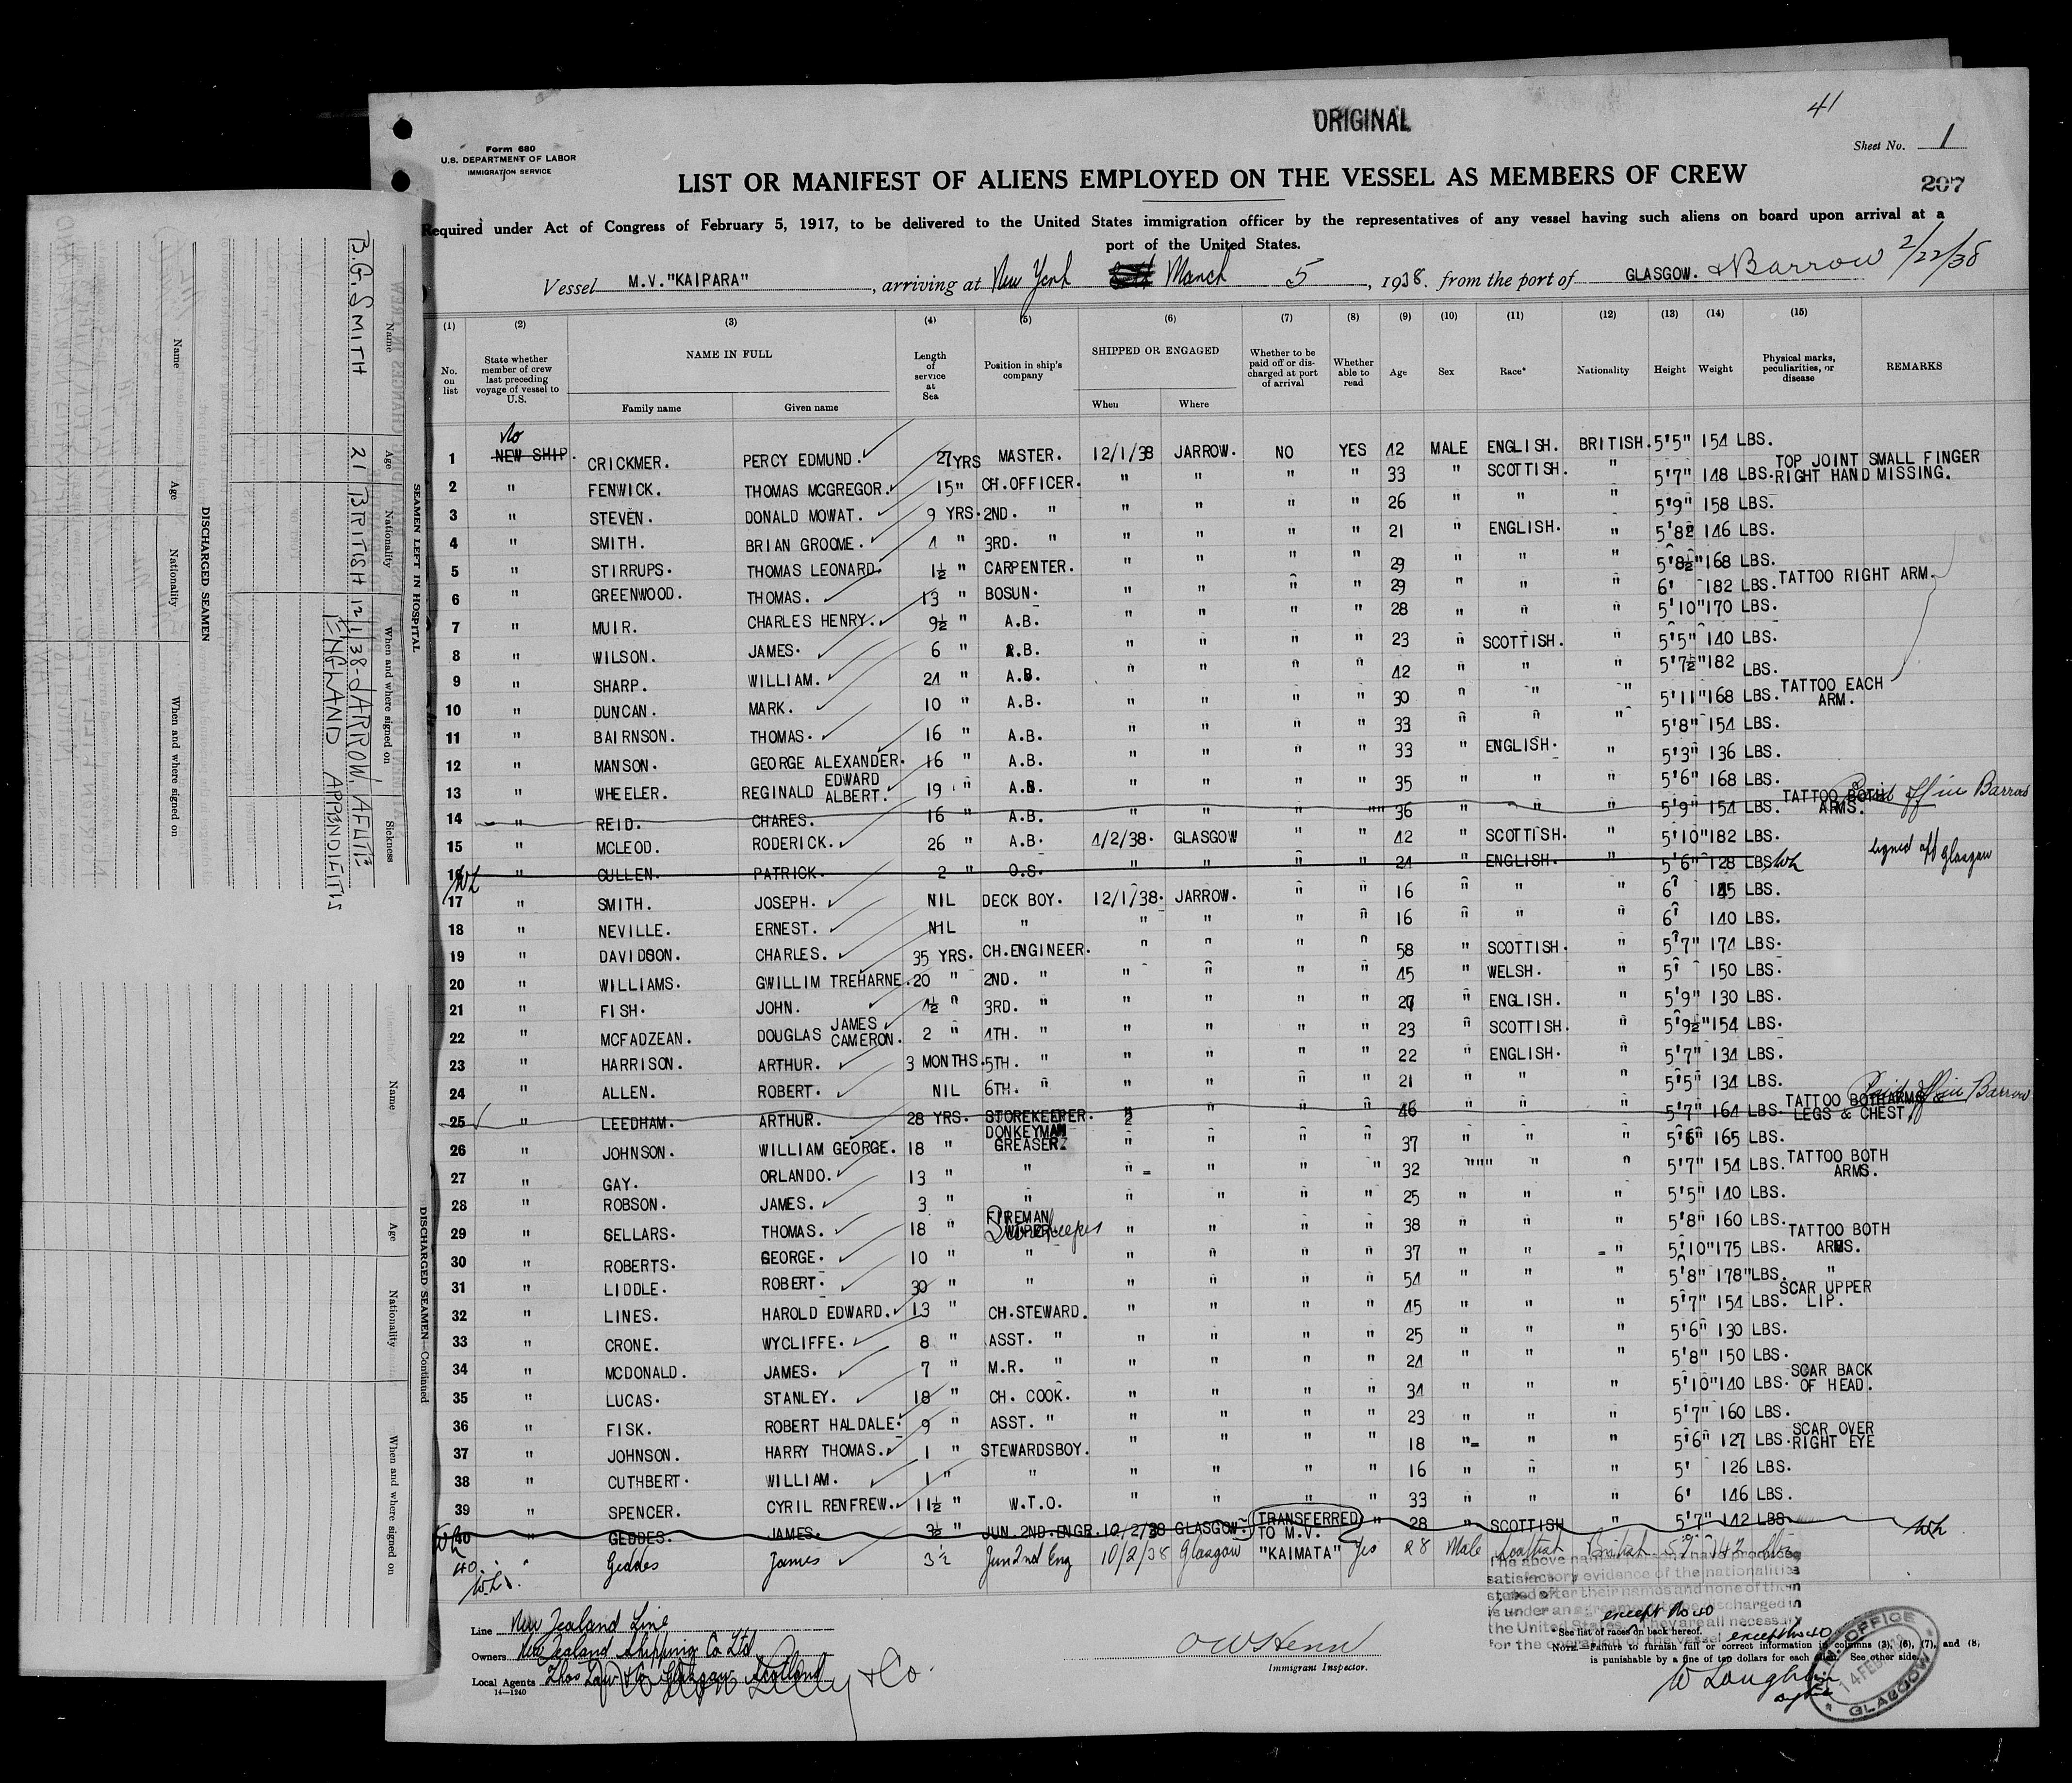 ORIGINAL
41
Form 680
U.S. DEPARTMENT OF LABOR
IMMIGRATION SERVICE
Sheet No. 1
LIST OR MANIFEST OF ALIENS EMPLOYED ON THE VESSEL AS MEMBERS OF CREW
207
Required under Act of Congress of February 5, 1917, to be delivered to the United States immigration officer by the representatives of any vessel having such aliens on board upon arrival at a
port of the United States.
Vessel M.V."KAIPARA", arriving at New York March 5, 1938. from the port of GLASGOW. & Barrow 2/22/38
(1) (2) (3) (4) (5) (6) (7) (8) (9) (10) (11) (12) (13) (14) (15)
No. on list State whether member of crew last preceding voyage of vessel to U.S. NAME IN FULL Family name Given name Length of service at Sea Position in ship's company SHIPPED OR ENGAGED When Where Whether to be paid off or discharged at port of arrival Whether able to read Age Sex Race* Nationality Height Weight Physical marks, peculiarities, or disease REMARKS
No
1 NEW SHIP. CRICKMER. PERCY EDMUND. 27 YRS MASTER. 12/1/38 JARROW. NO YES 42 MALE ENGLISH. BRITISH. 5'5" 154 LBS.
2 " FENWICK. THOMAS MCGREGOR. 15 " CH.OFFICER. " " " " 33 " SCOTTISH. " 5'7" 148 LBS. TOP JOINT SMALL FINGER RIGHT HAND MISSING.
3 " STEVEN. DONALD MOWAT. 9 YRS. 2ND. " " " " " 26 " " " 5'9" 158 LBS.
4 " SMITH. BRIAN GROOME. 4 " 3RD. " " " " " 21 " ENGLISH. " 5'8½ 146 LBS.
5 " STIRRUPS. THOMAS LEONARD. 1½ " CARPENTER. " " " " 29 " " " 5'8½" 168 LBS.
6 " GREENWOOD. THOMAS. 13 " BOSUN. " " " " 29 " " " 6' 182 LBS. TATTOO RIGHT ARM.
7 " MUIR. CHARLES HENRY. 9½ " A.B. " " " " 28 " " " 5'10" 170 LBS.
8 " WILSON. JAMES. 6 " A.B. " " " " 23 " SCOTTISH. " 5'5" 140 LBS.
9 " SHARP. WILLIAM. 24 " A.B. " " " " 42 " " " 5'7½" 182 LBS.
10 " DUNCAN. MARK. 10 " A.B. " " " " 30 " " " 5'11" 168 LBS. TATTOO EACH ARM.
11 " BAIRNSON. THOMAS. 16 " A.B. " " " " 33 " " " 5'8" 154 LBS.
12 " MANSON. GEORGE ALEXANDER. 16 " A.B. " " " " 33 " ENGLISH. " 5'3" 136 LBS.
13 " WHEELER. REGINALD EDWARD ALBERT. 19 " A.B. " " " " 35 " " " 5'6" 168 LBS.
14 " REID. CHARES. 16 " A.B. " " " " 36 " " " 5'9" 154 LBS. TATTOO BOTH ARMS. Paid off in Barrow
15 " MCLEOD. RODERICK. 26 " A.B. 4/2/38. GLASGOW " " 42 " SCOTTISH. " 5'10" 182 LBS.
16 " CULLEN. PATRICK. 2 " O.S. " " " " 24 " ENGLISH. " 5'6" 128 LBS. signed off Glasgow
17 " SMITH. JOSEPH. NIL DECK BOY. 12/1/38. JARROW. " " 16 " " " 6' 145 LBS.
18 " NEVILLE. ERNEST. NIL " " " " " 16 " " " 6' 140 LBS.
19 " DAVIDSON. CHARLES. 35 YRS. CH.ENGINEER. " " " " 58 " SCOTTISH. " 5'7" 174 LBS.
20 " WILLIAMS. GWILLIM TREHARNE. 20 " 2ND. " " " " " 45 " WELSH. " 5' 150 LBS.
21 " FISH. JOHN. 4½ " 3RD. " " " " " 27 " ENGLISH. " 5'9" 130 LBS.
22 " MCFADZEAN. DOUGLAS JAMES CAMERON. 2 " 4TH. " " " " " 23 " SCOTTISH. " 5'9½" 154 LBS.
23 " HARRISON. ARTHUR. 3 MONTHS. 5TH. " " " " " 22 " ENGLISH. " 5'7" 134 LBS.
24 " ALLEN. ROBERT. NIL 6TH. " " " " " 21 " " " 5'5" 134 LBS.
25 " LEEDHAM. ARTHUR. 28 YRS. STOREKEEPER. " " " " 46 " " " 5'7" 164 LBS. TATTOO BOTH ARMS LEGS & CHEST. Paid off in Barrow
26 " JOHNSON. WILLIAM GEORGE. 18 " DONKEYMAN GREASER. " " " " 37 " " " 5'6" 165 LBS.
27 " GAY. ORLANDO. 13 " " " " " " 32 " " " 5'7" 154 LBS. TATTOO BOTH ARMS.
28 " ROBSON. JAMES. 3 " " " " " " 25 " " " 5'5" 140 LBS.
29 " SELLARS. THOMAS. 18 " FIREMAN Storekeeper " " " " 38 " " " 5'8" 160 LBS.
30 " ROBERTS. GEORGE. 10 " " " " " " 37 " " " 5'10" 175 LBS. TATTOO BOTH ARMS.
31 " LIDDLE. ROBERT. 30 " " " " " " 54 " " " 5'8" 178" LBS. "
32 " LINES. HAROLD EDWARD. 13 " CH.STEWARD. " " " " 45 " " " 5'7" 154 LBS. SCAR UPPER LIP.
33 " CRONE. WYCLIFFE. 8 " ASST. " " " " " 25 " " " 5'6" 130 LBS.
34 " MCDONALD. JAMES. 7 " M.R. " " " " " 24 " " " 5'8" 150 LBS.
35 " LUCAS. STANLEY. 18 " CH. COOK. " " " " 34 " " " 5'10" 140 LBS. SCAR BACK OF HEAD.
36 " FISK. ROBERT HALDALE. 9 " ASST. " " " " " 23 " " " 5'7" 160 LBS.
37 " JOHNSON. HARRY THOMAS. 1 " STEWARDSBOY. " " " " 18 " " " 5'6" 127 LBS. SCAR OVER RIGHT EYE
38 " CUTHBERT. WILLIAM. 1 " " " " " " 16 " " " 5' 126 LBS.
39 " SPENCER. CYRIL RENFREW. 11½ " W.T.O. " " " " 33 " " " 6' 146 LBS.
40 " GEDDES. JAMES. 3½ " JUN.2ND.ENGR. 10/2/38 GLASGOW. TRANSFERRED TO M.V. "KAIMATA" " 28 " SCOTTISH " 5'7" 142 LBS
40. " Geddes James 3½ Jun 2nd Eng 10/2/38 Glasgow Yes 28 Male Scottish British 5'7" 142 lbs
The above named persons have produced
satisfactory evidence of the nationalities
stated after their names and none of them
is under an agreement to be discharged in
the United States. They are all necessary
for the operation of the vessel
except No 40
except no 40
Line New Zealand Line
Owners New Zealand Shipping Co Ltd
Local Agents Thos Law & Co Glasgow Scotland
14—1240
Immigrant Inspector.
*See list of races on back hereof.
NOTE.—Failure to furnish full or correct information in columns (3), (6), (7), and (8)
is punishable by a fine of ten dollars for each alien. See other side.
M.M. OFFICE
14 FEB 1938
GLASGOW
SEAMEN LEFT IN HOSPITAL
Name Age Nationality When and where signed on Sickness
B.G. SMITH 21 BRITISH 12/1/38-JARROW, ENGLAND ACUTE APPENDICITIS
DISCHARGED SEAMEN
Name Age Nationality When and where signed on
DISCHARGED SEAMEN—Continued
Name Age Nationality When and where signed on